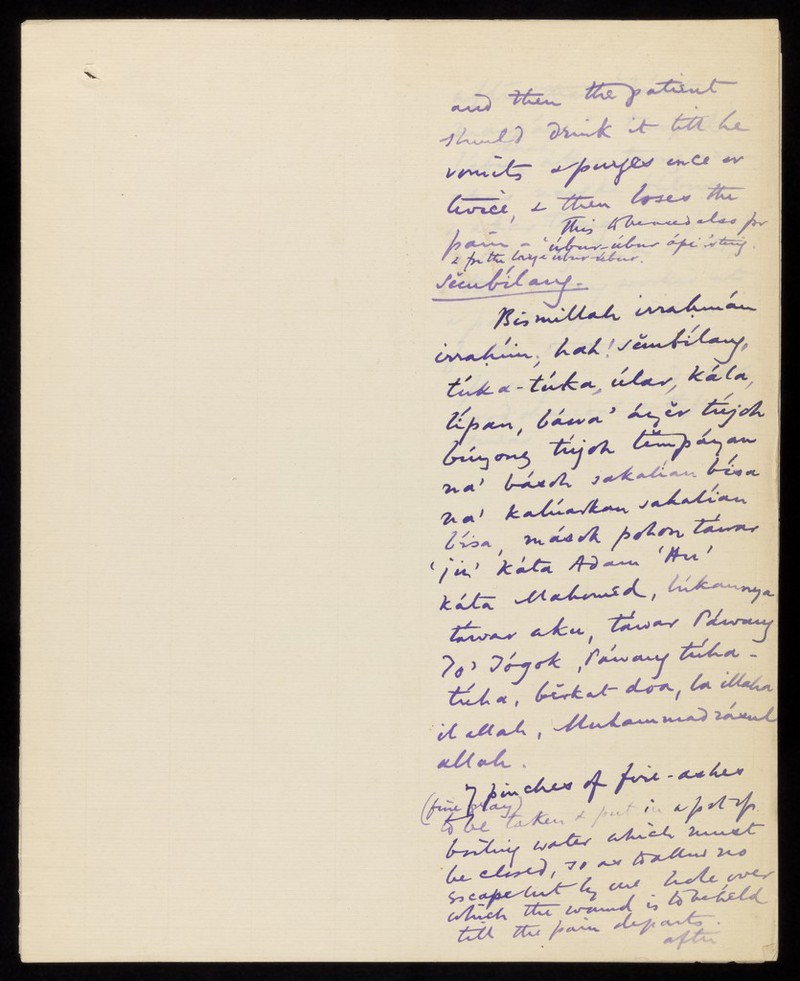 and then the patient
should drink it till he
vomits & purges once or
twice, & then loses the
pain - This to be used also for
úbur-úbur ápi
& for the large úbur-úbur.
Sĕmbílang -
Bismillah irrahmán
irrahím, hah! sĕmbílang,
túka-túka, úlar, kála,
lípan, báwa' áyĕr tújoh
búyong tújoh tĕmpáyan
na' básoh sakalian bísa
na' kalúarkan sakalían
bísa, mások pohon táwar
'jiu' káta Adam 'Hu'
káta Mahomed, búkannya
táwar aku, táwar Páwang
To' Jógok, Páwang túha-
túha, bĕrkat doa, la illaha
il allah, Muhammad rásul
allah.
7 pinches of fire-ashes
(fine gray)
to be taken & put in a pot of
boiling water which must
be closed, so as to allow no
escape but by one hole over
which the wound is to be held
till the pain departs.
after